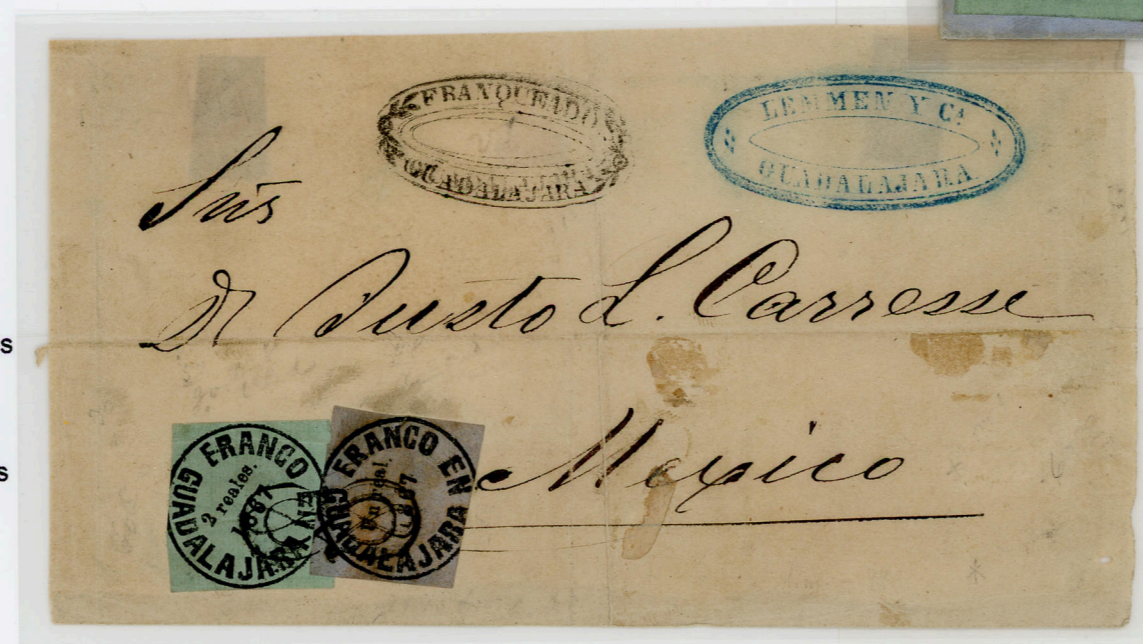 FRANQUEADO
GUADALAJARA
LEMMEN Y Cª
GUADALAJARA
Sñs
Dr Justo L. Carresse
Mexico
FRANCO EN GUADALAJARA
2 reales.
1867
FRANCO EN GUADALAJARA
Un real.
1867
s
s